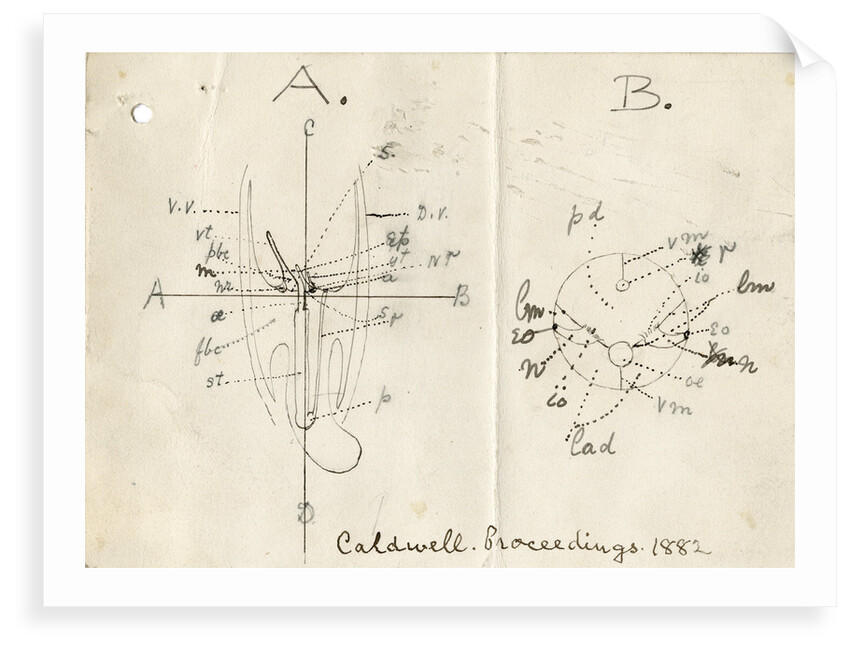 A.
B.
C
s.
V.V.
D.V.
vt
Ep
pbc
yt
N r
m
a
nr
A
B
æ
s
r
fbc
st
p
D
pd
vm
r
io
lm
lm
EO
EO
n
n
io
oe
vm
Cad
Caldwell. Proceedings. 1882